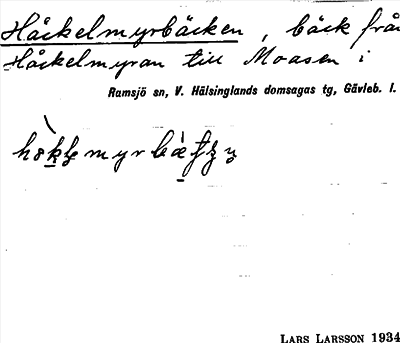 Håckelmyrbäcken, bäck från
Håckelmyran till Moasen i
Ramsjö sn, V. Hälsinglands domsagas tg, Gävleb. l.
LARS LARSSON 1934